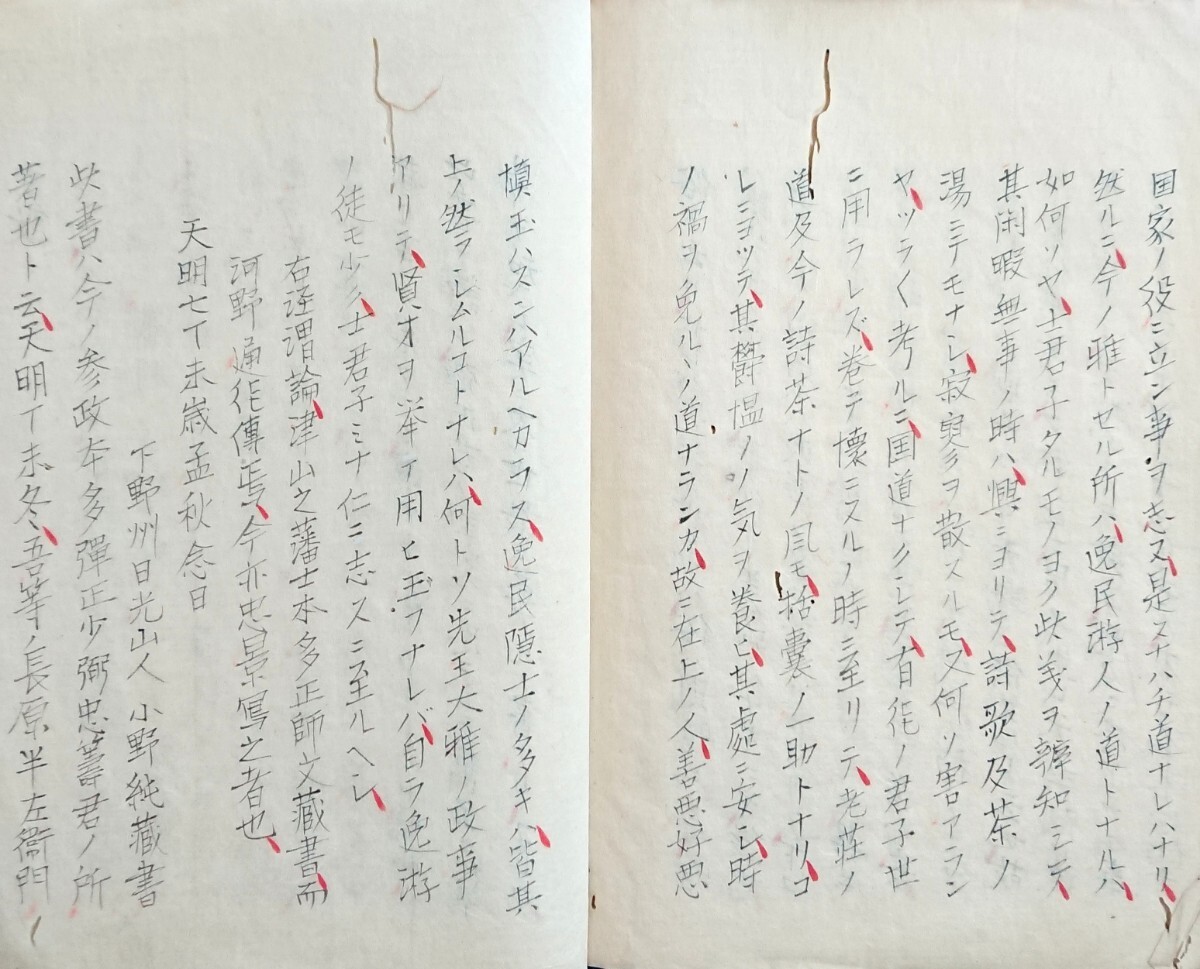 国家ノ役ニ立ン事ヲ志又是スナハチ道ナレハナリ
然ルニ今ノ雅トセル所ハ逸民游人ノ道トナルハ
如何ソヤ士君子タルモノヨク此义ヲ辨知シテ
其閑暇無事ノ時ハ興ニヨリテ詩歌及茶ノ
湯ニテモナシ寂寥ヲ散スルモ又何ソ害アラン
ヤツラ〱考ルニ国道ナクシテ有徳ノ君子世
ニ用ラレズ巻テ懐ニスルノ時ニ至リテ老荘ノ
道及今ノ詩茶ナトノ風モ括嚢ノ一助トナリコ
レニヨツテ其欝愠ノ気ヲ養ヒ其處ニ安シ時
ノ禍ヲ免ルヽノ道ナランカ故ニ在上ノ人善悪好悪
慎玉ハスンハアルヘカラス逸民隠士ノ多キハ皆其
上ノ然ラシムルコトナレハ何トソ先王大雅ノ政事
アリテ賢才ヲ挙テ用ヒ玉フナレバ自ラ逸游
ノ徒モ少ク士君子ミナ仁ニ志スニ至ルヘシ
右 論津山之藩士本多正師文藏書而
河野通 傳 今亦忠景写之者也
天明七丁未歳孟秋念日
下野州日光山人 小野純藏書
此書ハ今ノ参政本多弾正少弼忠籌君ノ所
著也ト云天明丁未冬吾等ノ長原半左衛門